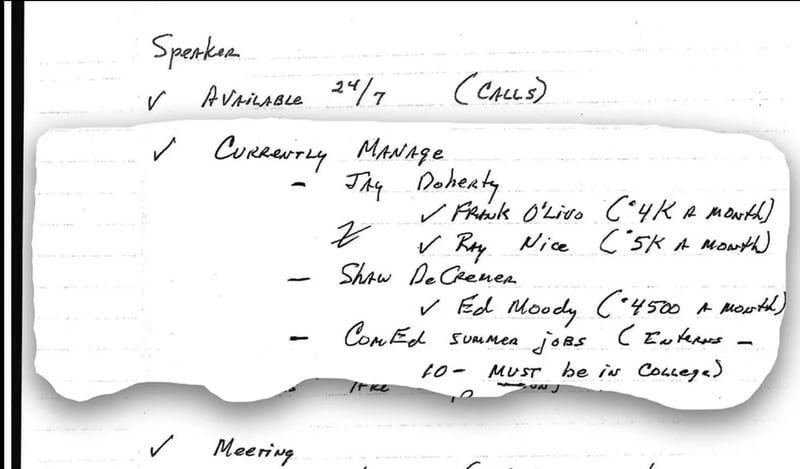 Speaker
✓ Available 24/7 (Calls)
✓ Currently Manage
- Jay Doherty
✓ Frank O'Livo ($4K A Month)
2 ✓ Ray Nice ($5K A Month)
- Shaw DeCremer
✓ Ed Moody ($4500 A Month)
- ComEd summer jobs (Enterns -
10 - MUST be in College)
✓ Meeting